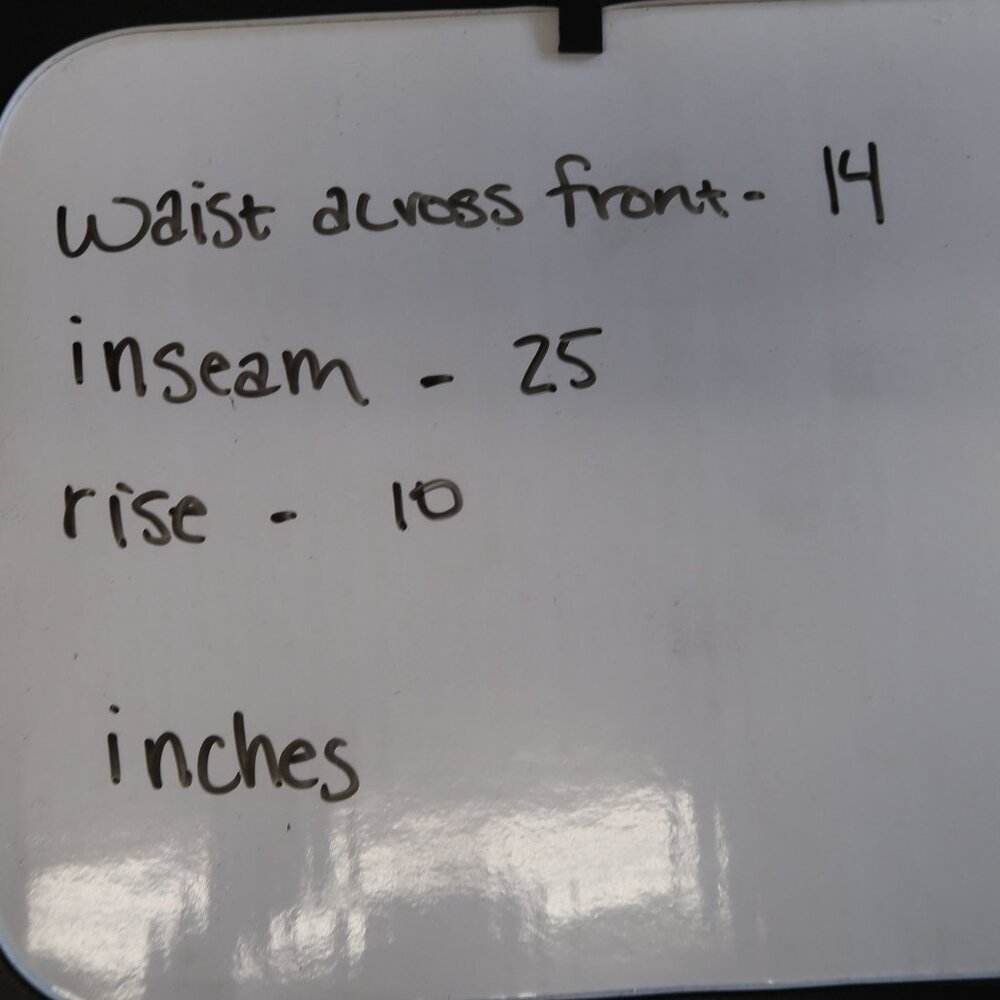 Waist across front - 14
inseam - 25
rise - 10
inches